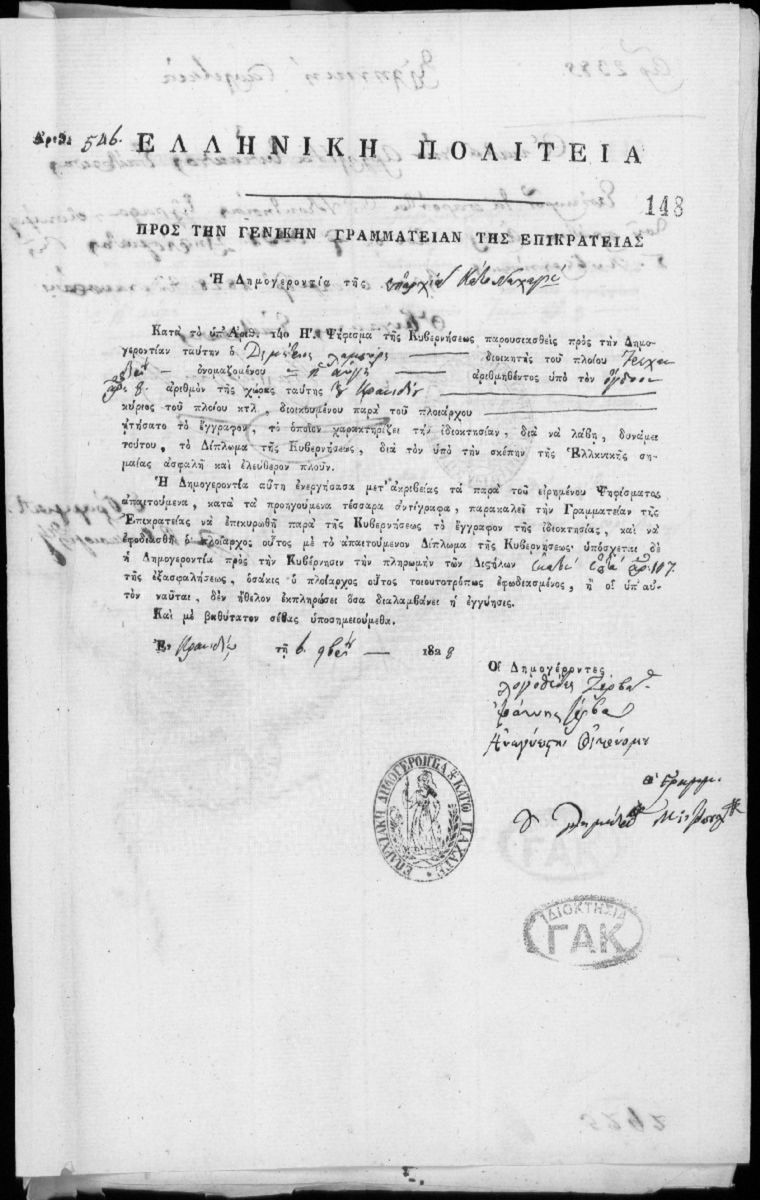 Ἀριθ. 546. ΕΛΛΗΝΙΚΗ ΠΟΛΙΤΕΙΑ
148
ΠΡΟΣ ΤΗΝ ΓΕΝΙΚΗΝ ΓΡΑΜΜΑΤΕΙΑΝ ΤΗΣ ΕΠΙΚΡΑΤΕΙΑΣ
Ἡ Δημογεροντία τῆς ἐπαρχίας Κάτω Ναχαγέ
Κατὰ τὸ ὑπ' Ἀριθ. 140 Η'. Ψήφισμα τῆς Κυβερνήσεως παρουσιασθεὶς πρὸς τὴν Δημο-
γεροντίαν ταύτην ὁ Δημήτριος διοικητὴς τοῦ πλοίου
ὀνομαζομένου ἀριθμηθέντος ὑπὸ τὸν ὄγδοον
ἀρ. 8. ἀριθμὸν τῆς χώρας ταύτης Κρανιδίου
κύριος τοῦ πλοίου κτλ, διοικουμένου παρὰ τοῦ πλοιάρχου
ᾐτήσατο τὸ ἔγγραφον, τὸ ὁποῖον χαρακτηρίζει τὴν ἰδιοκτησίαν, διὰ νὰ λάβῃ, δυνάμει
τούτου, τὸ Δίπλωμα τῆς Κυβερνήσεως, διὰ τὸν ὑπὸ τὴν σκέπην τῆς Ἑλληνικῆς ση-
μαίας ἀσφαλῆ καὶ ἐλεύθερον πλοῦν.
Ἡ Δημογεροντία αὕτη ἐνεργήσασα μετ' ἀκριβείας τὰ παρὰ τοῦ εἰρημένου Ψηφίσματος
ἀπαιτούμενα, κατὰ τὰ προηγούμενα τέσσαρα ἀντίγραφα, παρακαλεῖ τὴν Γραμματείαν τῆς
Ἐπικρατείας νὰ ἐπικυρωθῇ παρὰ τῆς Κυβερνήσεως τὸ ἔγγραφον τῆς ἰδιοκτησίας, καὶ νὰ
ἐφοδιασθῇ ὁ πλοίαρχος οὗτος μὲ τὸ ἀπαιτούμενον Δίπλωμα τῆς Κυβερνήσεως· ὑπόσχεται δὲ
ἡ Δημογεροντία πρὸς τὴν Κυβέρνησιν τὴν πληρωμὴν τῶν Διστήλων ἑκατὸν ἑπτὰ ἀρ: 107.
τῆς ἐξασφαλήσεως, ὁσάκις ὁ πλοίαρχος οὗτος τοιουτοτρόπως ἐφωδιασμένος, ἢ οἱ ὑπ' αὐ-
τὸν ναῦται, δὲν ἤθελον ἐκπληρώσει ὅσα διαλαμβάνει ἡ ἐγγύησις.
Καὶ μὲ βαθύτατον σέβας ὑποσημειούμεθα.
Ἐν Κρανιδίῳ τῇ 6. 9βρίου 1828
Οἱ Δημογέροντες
λογοθέτης Ζέρβας
Ἰωάννης Ζέρβας
Ἀναγνώστης Οἰκονόμου
ὁ Γραμμ.
ΕΠΑΡΧΙΑΚΗ ΔΗΜΟΓΕΡΟΝΤΙΑ ΚΑΤΩ ΝΑΧΑΓΕ
ΙΔΙΟΚΤΗΣΙΑ
ΓΑΚ